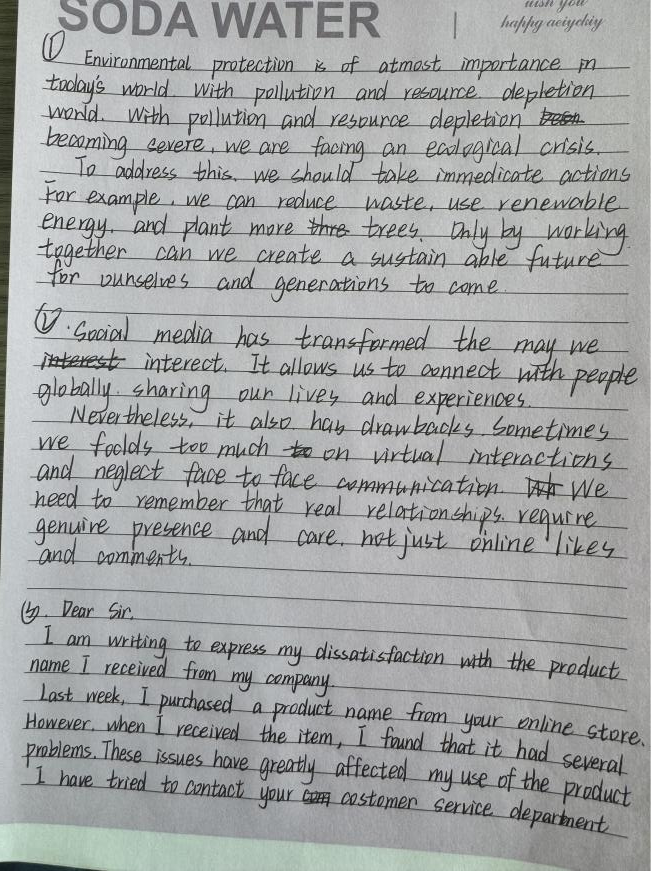 SODA WATER
wish you
happg aeiychiy
① Environmental protection is of atmost importance in
today's world. With pollution and resource depletion
world. With pollution and resource depletion
becoming severe, we are facing an ecological crisis.
To address this. we should take immedicate actions
For example, we can reduce waste, use renewable
energy, and plant more trees. Only by working
together can we create a sustain able future
for ounselves and generations to come.
Social media has transformed the may we
interect. It allows us to connect with people
globally. sharing our lives and experiences.
Nevertheless, it also has drawbacks. Sometimes
we too much on virtual interactions
and neglect face to face communication. We
need to remember that real relationships. require
genuire presence and care. not just online likes
and comments.
Dear Sir.
I am writing to express my dissatisfaction with the product
name I received from my company.
Last week, I purchased a product name from your online store.
However. when I received the item, I found that it had several
problems. These issues have greatly affected my use of the product
I have tried to contact your costomer service department